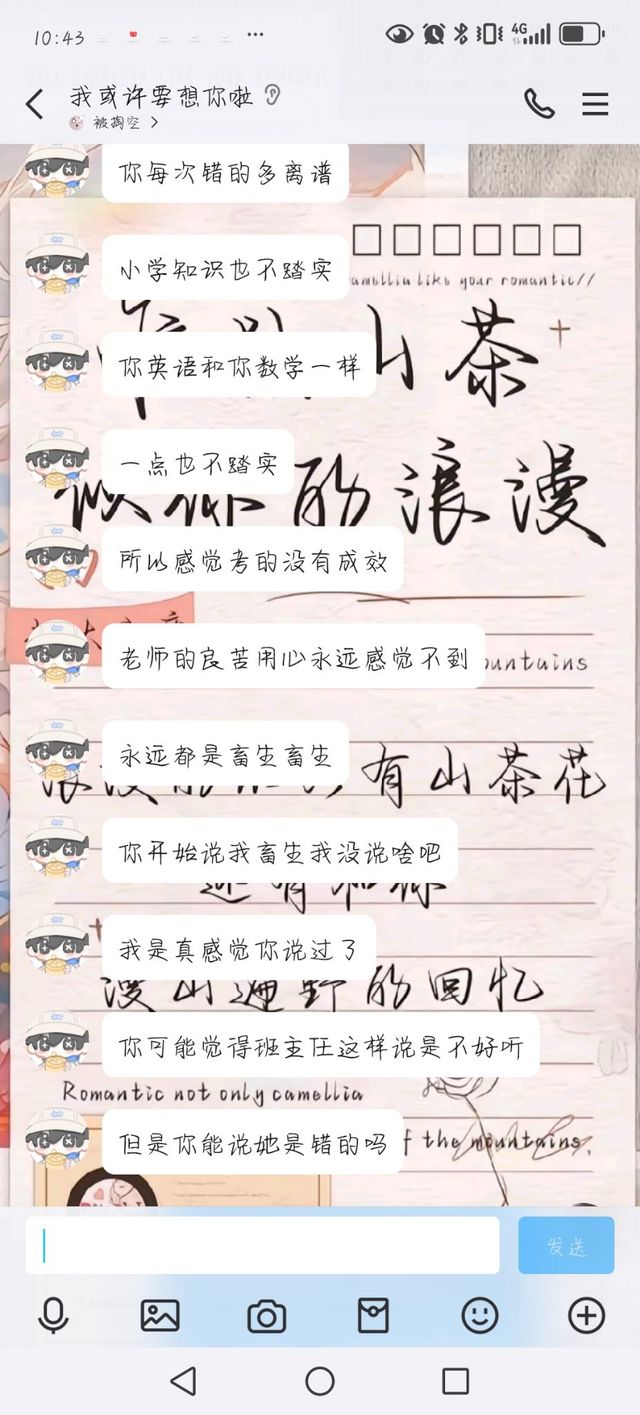 10:43
4G
我或许要想你啦
被掏空
你每次错的多离谱
小学知识也不踏实
amellia like your romantic//
你英语和你数学一样
山茶
一点也不踏实
似你的浪漫
所以感觉考的没有成效
老师的良苦用心永远感觉不到
ountains
永远都是畜生畜生
有山茶花
你开始说我畜生我没说啥吧
还有和你
我是真感觉你说过了
漫山遍野的回忆
你可能觉得班主任这样说是不好听
Romantic not only camellia
但是你能说她是错的吗
f the mountains.
发送